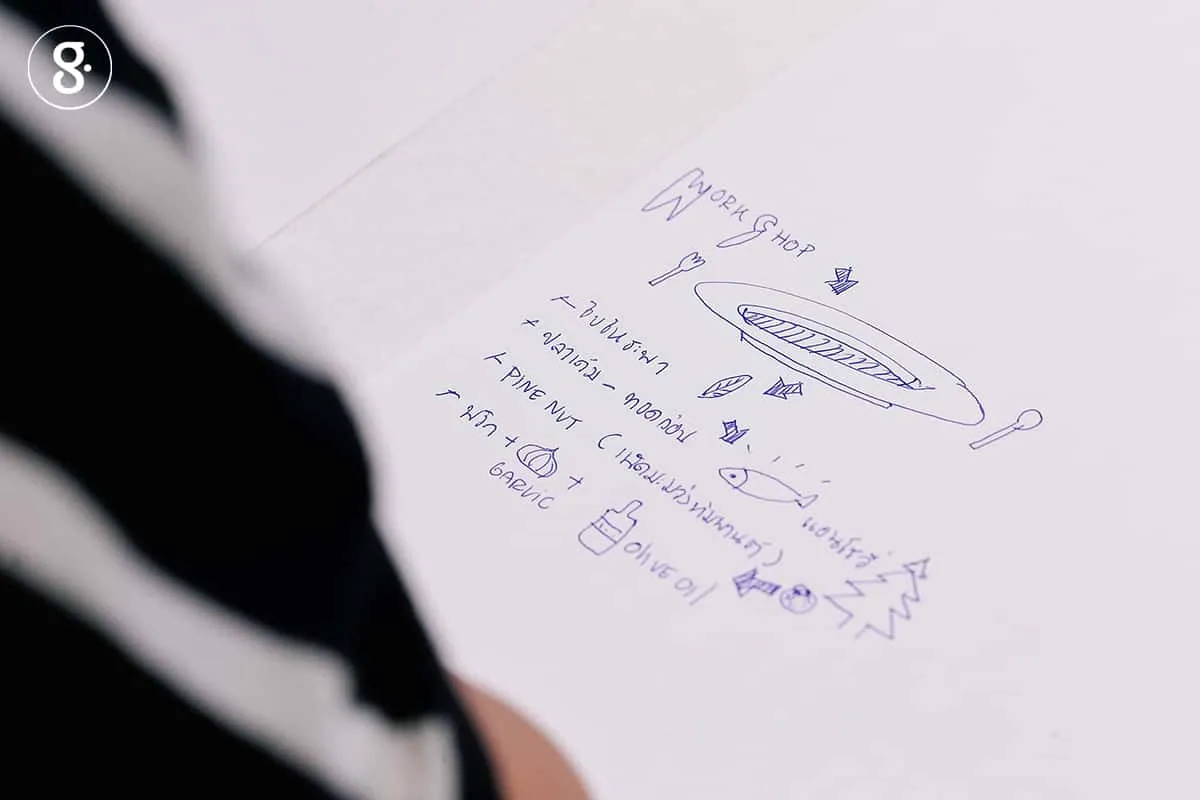 g.
WORKSHOP
ใบโหระพา
ปลาเค็ม - ทอดกรอบ
PINE NUT (เม็ดมะม่วงหิมพานต์)
พริก + GARLIC +
OLIVE OIL